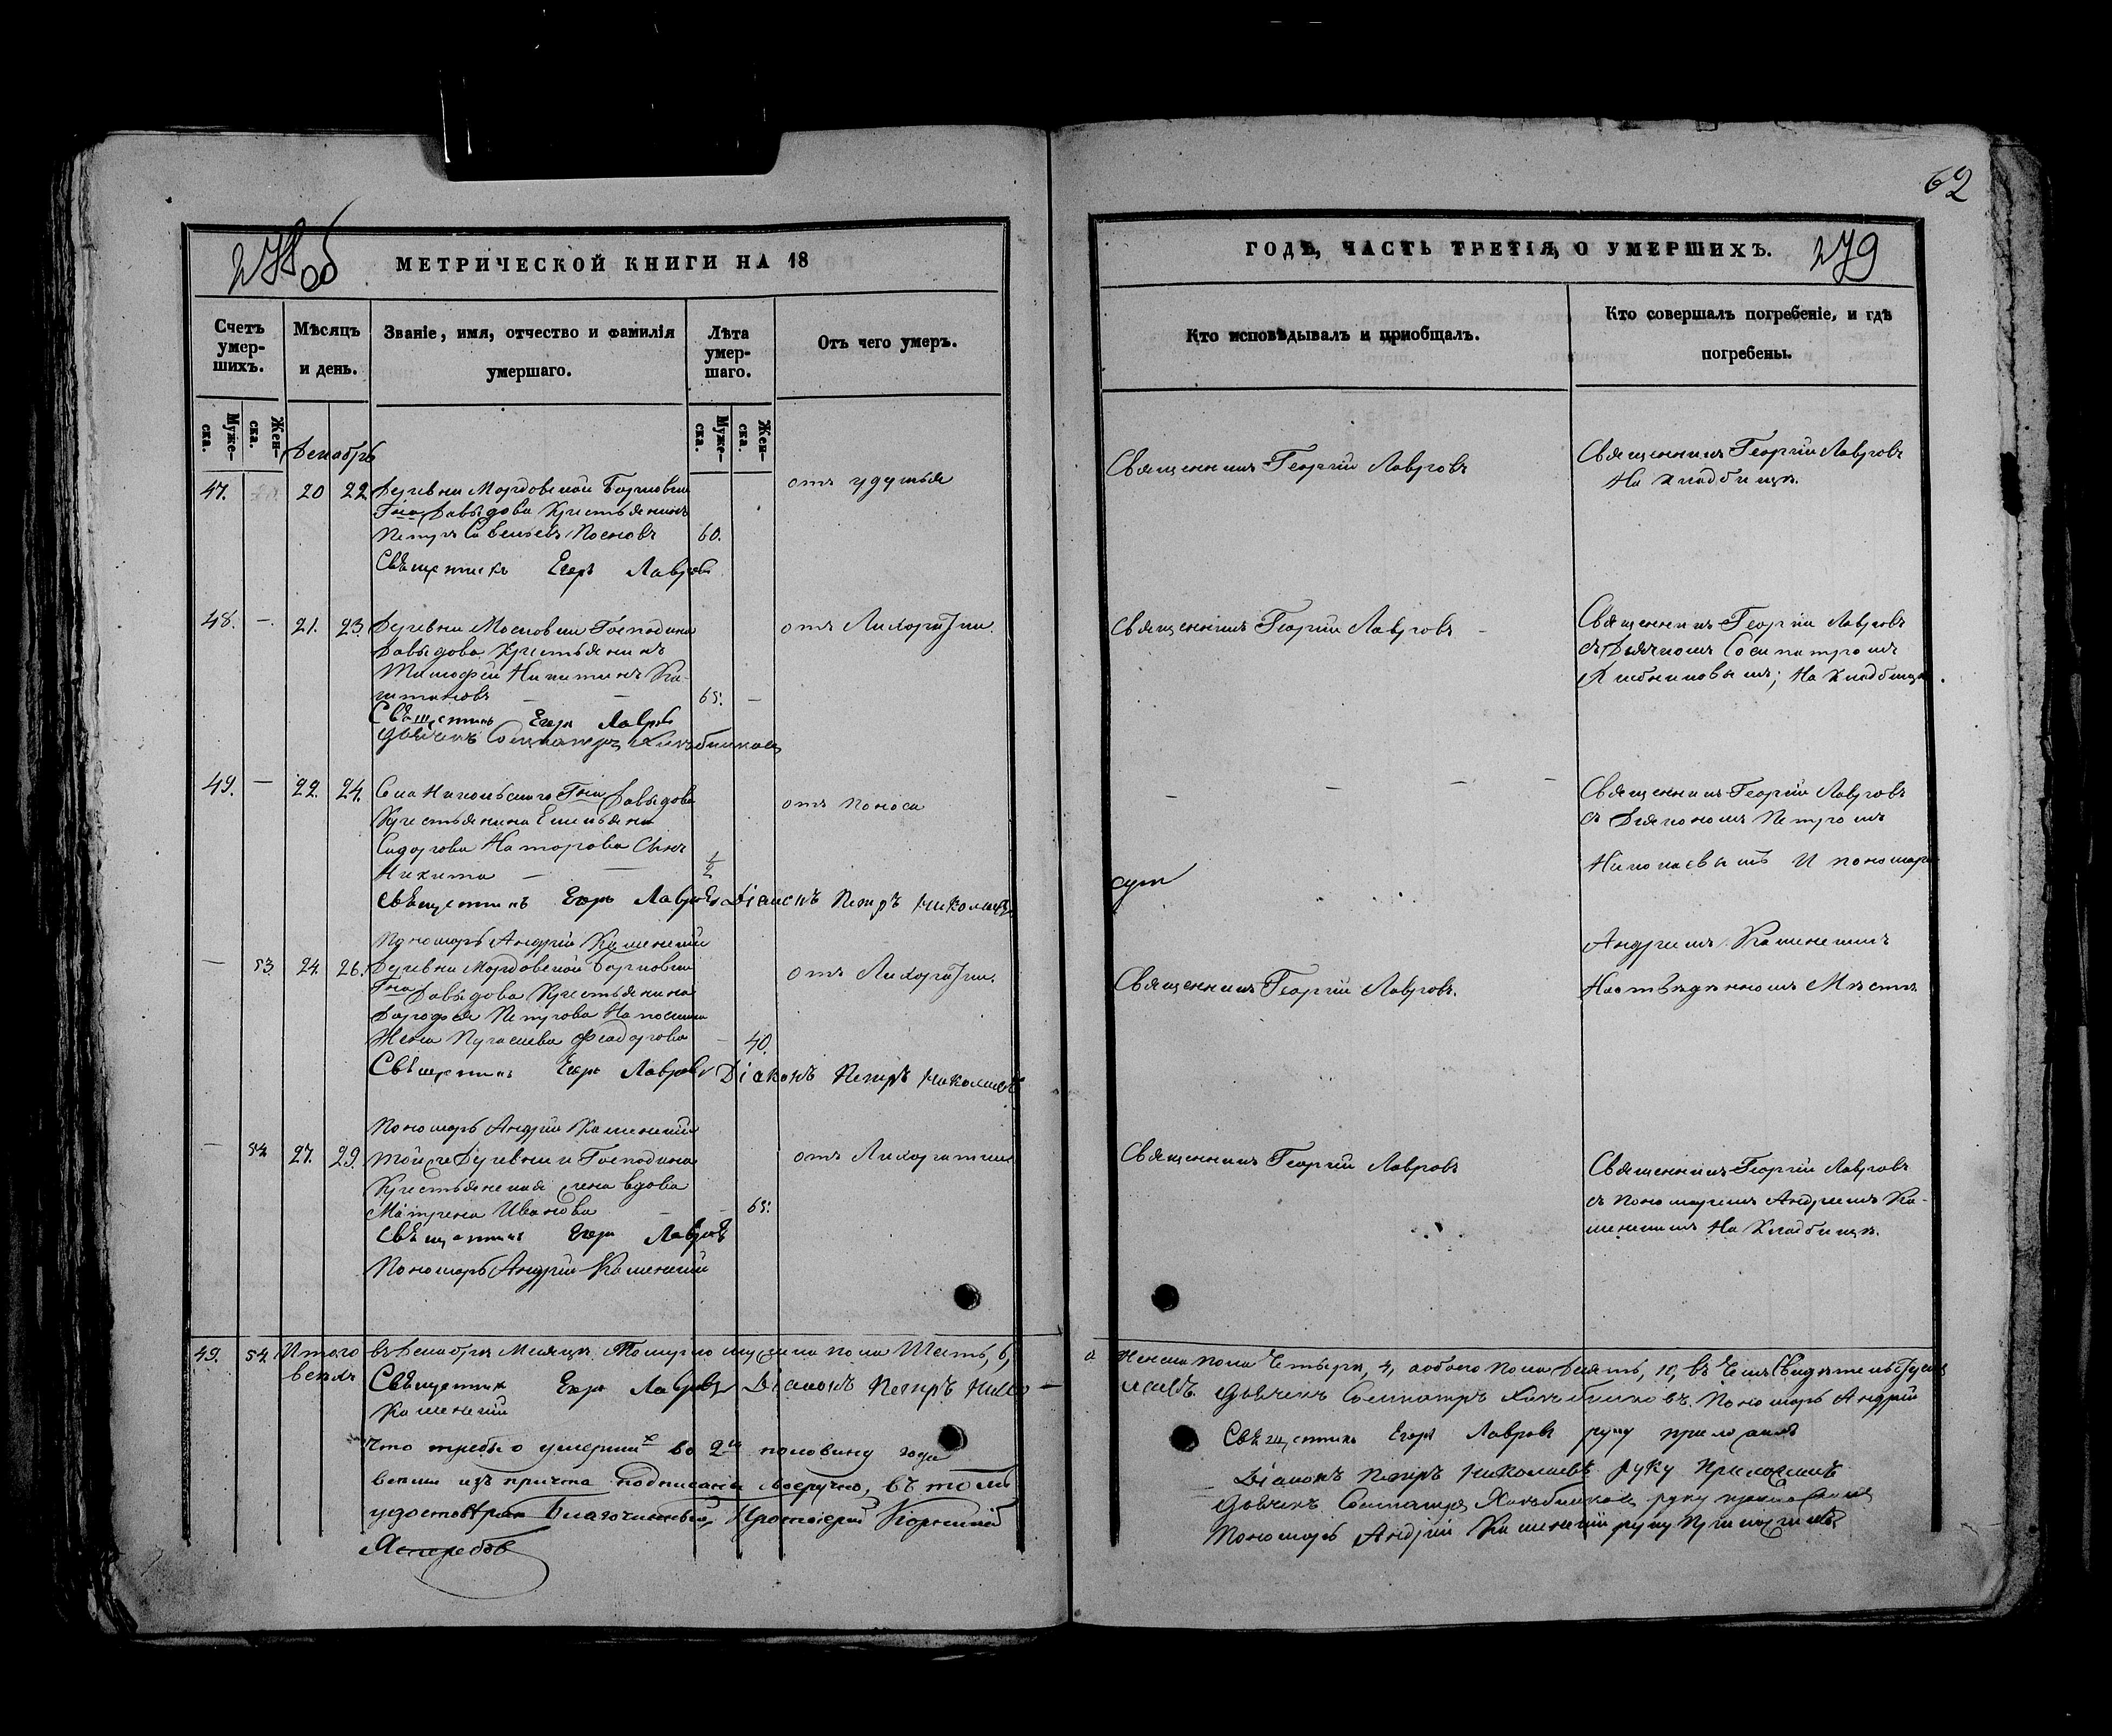 62
278 об
МЕТРИЧЕСКОЙ КНИГИ НА 18
ГОДЪ, ЧАСТЬ ТРЕТІЯ, О УМЕРШИХЪ.
279
Счетъ умер-шихъ.
Мѣсяцъ и день.
Званіе, имя, отчество и фамилія умершаго.
Лѣта умер-шаго.
Отъ чего умеръ.
Кто исповѣдывалъ и пріобщалъ.
Кто совершалъ погребеніе, и гдѣ погребены.
Муже-ска.
Жен-ска.
Муже-ска.
Жен-ска.
Декабрь
47.
20
22
Деревни Мордовской
Гна Давыдова Крестьянинъ
Петръ Савельевъ
60.
Священникъ Егоръ Лавровъ
отъ удушья
Священникъ Георгій Лавровъ
Священникъ Георгій Лавровъ
На кладбищѣ.
48.
-.
21.
23.
Деревни Господина
Давыдова Крестьянинъ
Тимофей Никитинъ Ка-
питановъ
65.
Священникъ Егоръ Лавровъ
Дьячекъ Сосипатръ Хлѣбниковъ
отъ Лихорадки.
Священникъ Георгій Лавровъ
Священникъ Георгій Лавровъ
съ Дьячкомъ Сосипатромъ
Хлебниковымъ; На кладбищѣ.
49.
-
22.
24.
Села Никольскаго Гна Давыдова
Крестьянина Емельяна
Сидорова сынъ
Никита
1/2
Священникъ Егоръ Лавровъ Діаконъ Петръ Николаевъ
Пономарь Андрей Каменскій
отъ поноса
Священникъ Георгій Лавровъ
съ Діакономъ Петромъ
Николаевымъ И пономаремъ
Андреемъ Каменскимъ
-
53.
24.
26.
Деревни Мордовской
Гна Давыдова Крестьянина
Дорофея Петрова
Жена Федорова
40.
Священникъ Егоръ Лавровъ Діаконъ Петръ Николаевъ
Пономарь Андрей Каменскій
отъ Лихорадки.
Священникъ Георгій Лавровъ.
На отведенномъ Мѣстѣ.
-
54
27.
29.
Той же Деревни и Господина
Крестьянская жена вдова
Матрена Иванова
65.
Священникъ Егоръ Лавровъ
Пономарь Андрей Каменскій
отъ Лихорадки
Священникъ Георгій Лавровъ
Священникъ Георгій Лавровъ
съ пономаремъ Андреемъ Ка-
менскимъ На Кладбищѣ.
49.
54.
Итого въ Декабрѣ Месяцѣ Померло мужеска пола Шесть, 6,
а Женска пола Четыре, 4, а обоего пола Десять, 10, въ чемъ Свидетельствуемъ
всѣхъ
Священникъ Егоръ Лавровъ Діаконъ Петръ Нико-
лаевъ Дьячекъ Сосипатръ Хлѣбниковъ. Пономарь Андрей
Каменскій
Священникъ Егоръ Лавровъ руку приложилъ
Діаконъ Петръ Николаевъ руку Приложилъ
Дьячекъ Сосипатръ Хлѣбниковъ руку приложилъ
Пономарь Андрей Каменскій руку Приложилъ
Что требы о умершихъ во 2й половину года
всѣми изъ причта подписаны своеручно, въ томъ
удостовѣряю Благочинный, Протоіерей
Ястребовъ